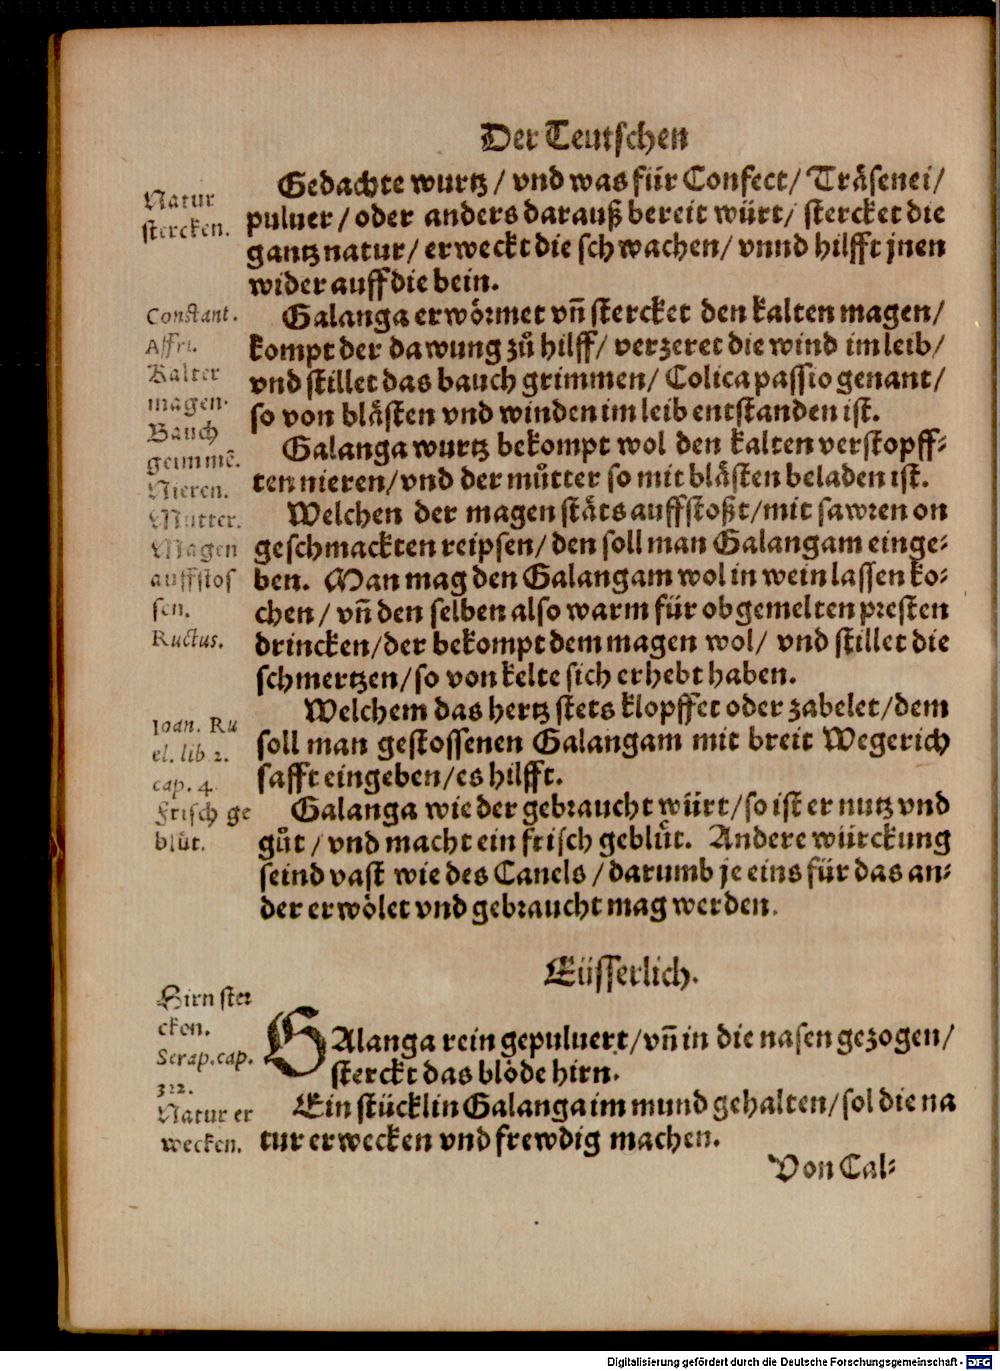 Der Teutschen
Natur
stercken.
Gedachte wurtz / vnd was für Confect / Träsenei /
puluer / oder anders darauß bereit würt / stercket die
gantz natur / erweckt die schwachen / vnnd hilfft jnen
wider auff die bein.
Constant.
Affri.
Kalter
magen.
Bauch
grimmē.
Galanga erwörmet vn̄ stercket den kalten magen /
kompt der dawung zů hilff / verzeret die wind im leib /
vnd stillet das bauch grimmen / Colica passio genant /
so von blästen vnd winden im leib entstanden ist.
Nieren.
Mutter.
Galanga wurtz bekompt wol den kalten verstopff⸗
ten nieren / vnd der můtter so mit blästen beladen ist.
Magen
auffstos
sen.
Ructus.
Welchen der magen stäts auffstoßt / mit sawren on
geschmackten reipsen / den soll man Galangam einge⸗
ben. Man mag den Galangam wol in wein lassen ko⸗
chen / vn̄ den selben also warm für obgemelten presten
drincken / der bekompt dem magen wol / vnd stillet die
schmertzen / so von kelte sich erhebt haben.
Ioan. Ru
el. lib 2.
cap. 4
Welchem das hertz stets klopffet oder zabelet / dem
soll man gestossenen Galangam mit breit Wegerich
safft eingeben / es hilfft.
Frisch ge
blůt.
Galanga wie der gebraucht würt / so ist er nutz vnd
gůt / vnd macht ein frisch geblůt. Andere würckung
seind vast wie des Canels / darumb je eins für das an⸗
der erwölet vnd gebraucht mag werden.
Eüsserlich.
Hirn ster
cken.
Serap. cap.
322.
GAlanga rein gepuluert / vn̄ in die nasen gezogen /
sterckt das blöde hirn.
Natur er
wecken.
Ein stücklin Galanga im mund gehalten / sol die na
tur erwecken vnd frewdig machen.
Von Cal⸗
Digitalisierung gefördert durch die Deutsche Forschungsgemeinschaft - DFG